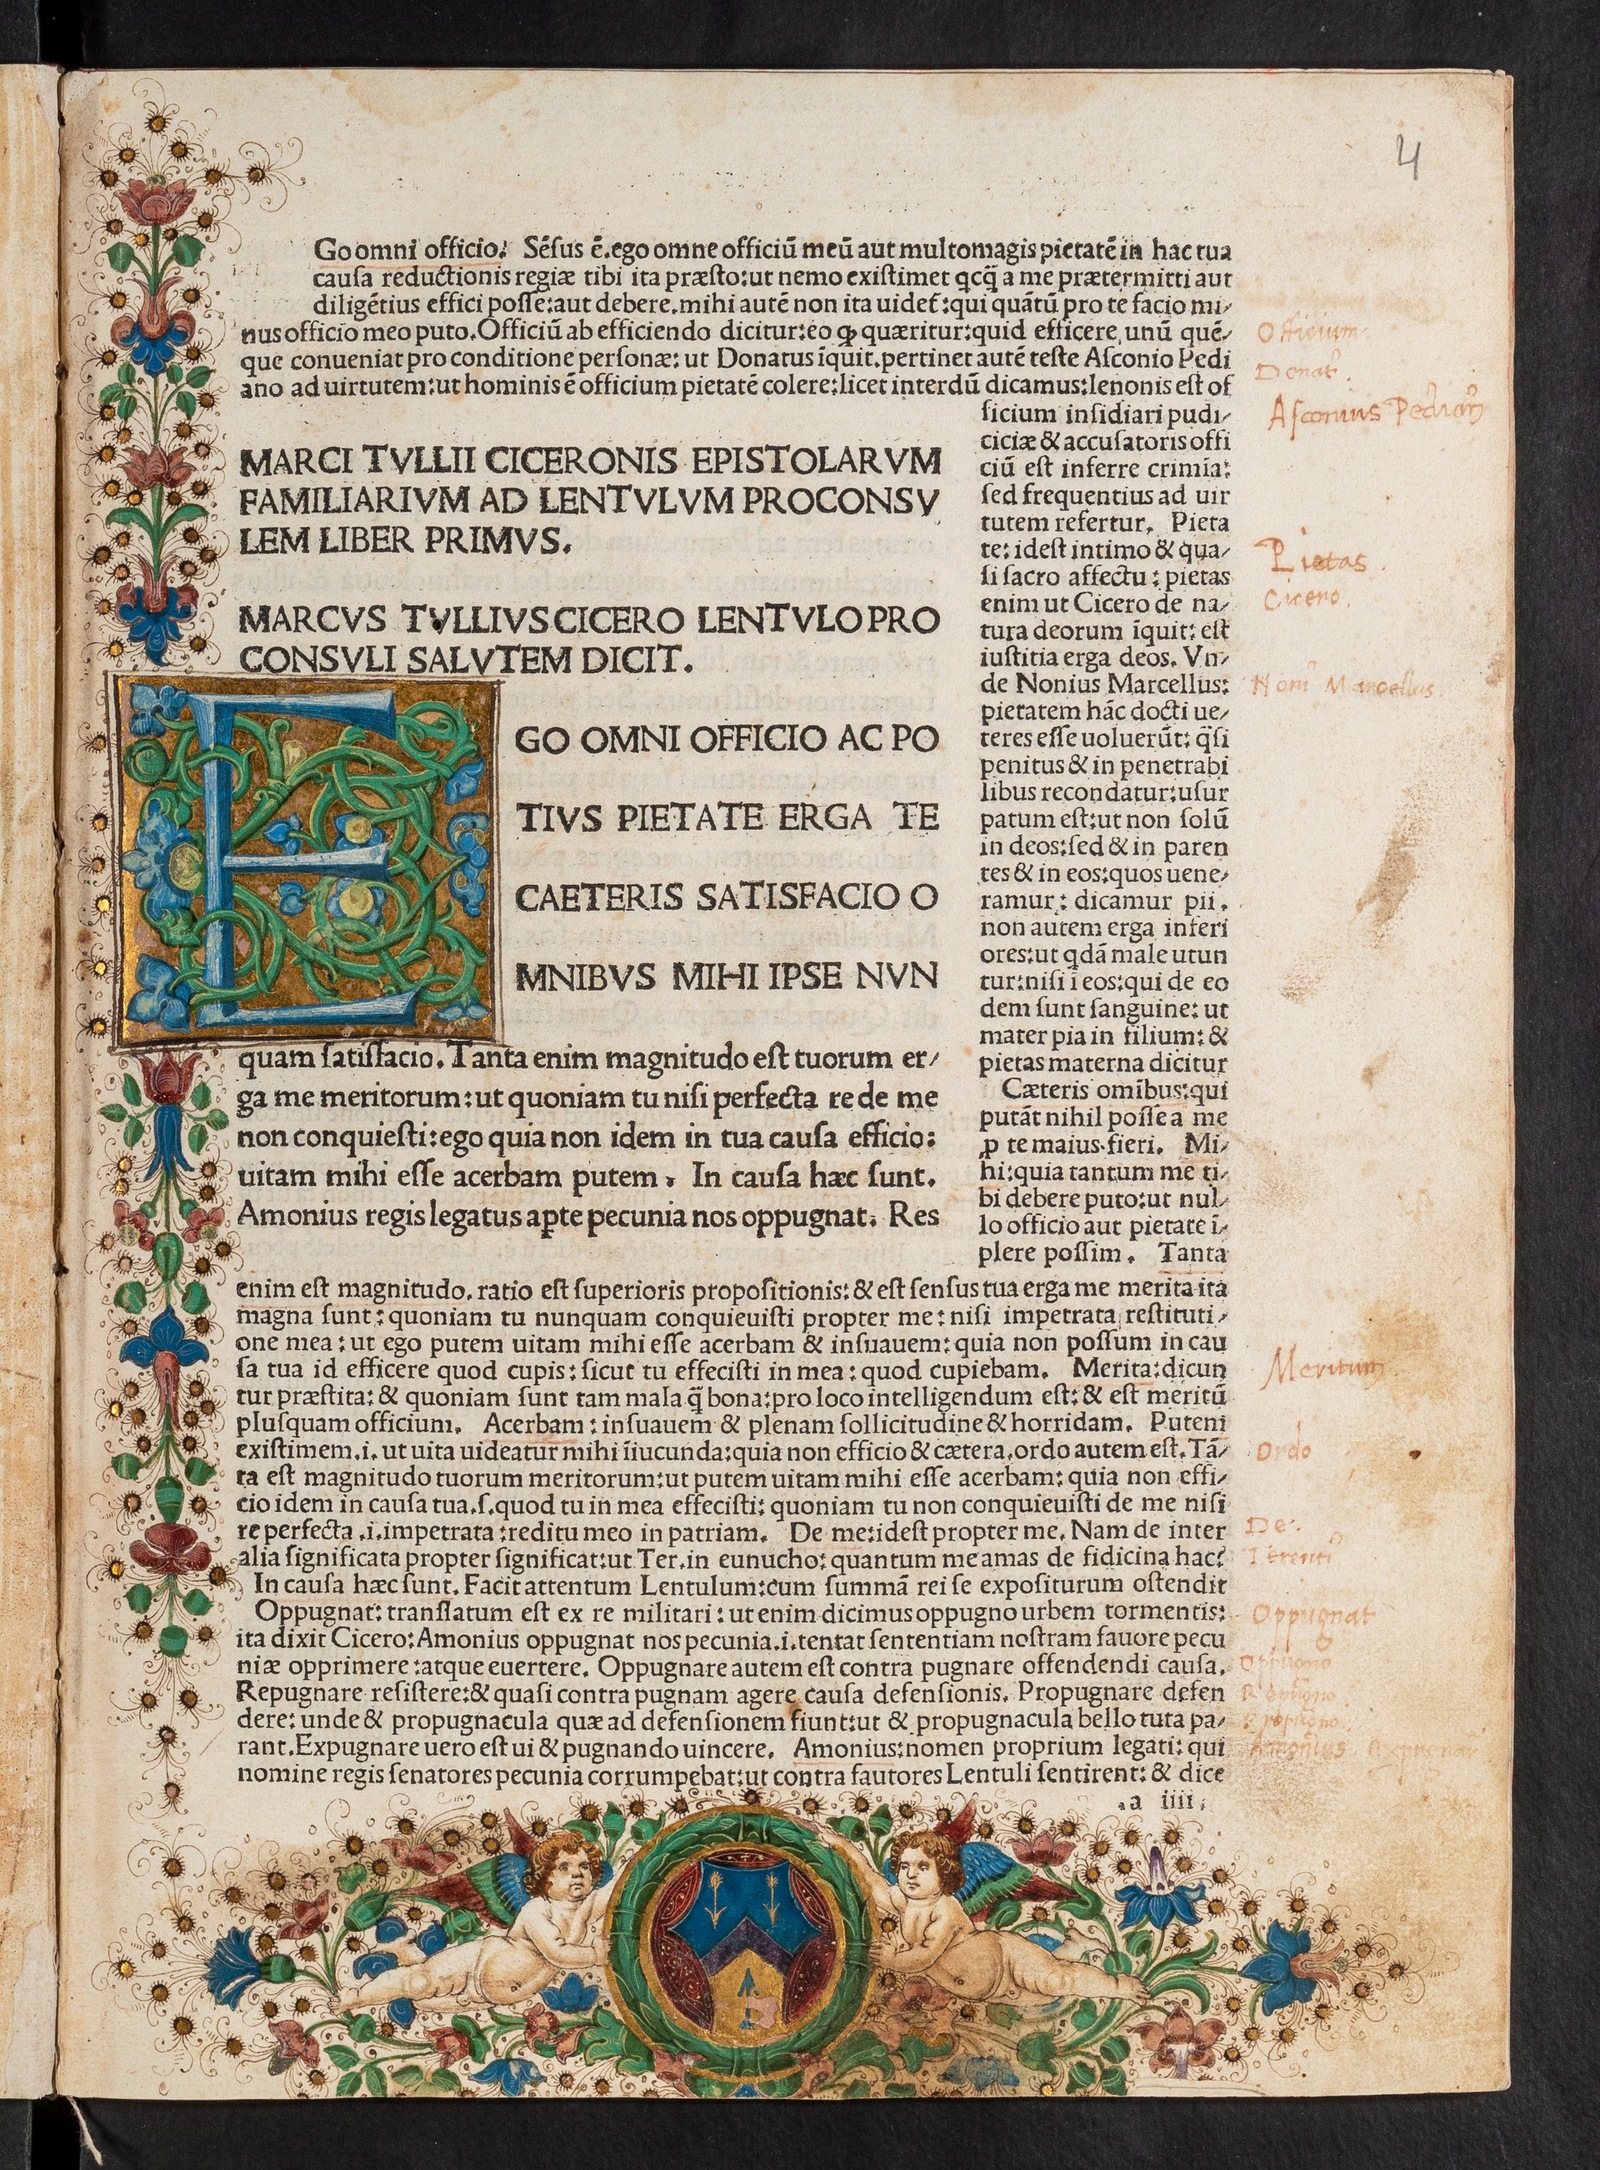 4
Go omni officio: Sẽsus ẽ.ego omne officiũ meũ aut multomagis pietatẽ in hac tua
causa reductionis regiæ tibi ita præsto:ut nemo existimet qcq̃ a me prætermitti aut
diligẽtius effici posse:aut debere.mihi autẽ non ita uidet̃:qui quãtũ pro te facio mi/
nus officio meo puto.Officiũ ab efficiendo dicitur:eo ꝙ quæritur:quid efficere unũ quẽ/
que conueniat pro conditione personæ: ut Donatus ĩquit.pertinet autẽ teste Asconio Pedi
ano ad uirtutem:ut hominis ẽ officium pietatẽ colere:licet interdũ dicamus:lenonis est of
ficium insidiari pudi/
ciciæ & accusatoris offi
ciũ est inferre crimĩa:
sed frequentius ad uir
tutem refertur. Pieta
te: idest intimo & qua/
si sacro affectu : pietas
enim ut Cicero de na/
tura deorum ĩquit: est
iustitia erga deos. Vn/
de Nonius Marcellus:
pietatem hãc docti ue/
teres esse uoluerũt: q̃si
penitus & in penetrabi
libus recondatur:usur
patum est:ut non solũ
in deos:sed & in paren
tes & in eos:quos uene/
ramur: dicamur pii.
non autem erga inferi
ores:ut qdã male utun
tur:nisi ĩ eos:qui de eo
dem sunt sanguine: ut
mater pia in filium: &
pietas materna dicitur
Cæteris omĩbus:qui
putãt nihil posse a me
ꝓ te maius fieri. Mi/
hi:quia tantum me ti/
bi debere puto:ut nul/
lo officio aut pietate ĩ/
plere possim. Tanta
MARCI TVLLII CICERONIS EPISTOLARVM
FAMILIARIVM AD LENTVLVM PROCONSV
LEM LIBER PRIMVS.
MARCVS TVLLIVS CICERO LENTVLO PRO
CONSVLI SALVTEM DICIT.
EGO OMNI OFFICIO AC PO
TIVS PIETATE ERGA TE
CAETERIS SATISFACIO O
MNIBVS MIHI IPSE NVN
quam satisfacio. Tanta enim magnitudo est tuorum er/
ga me meritorum:ut quoniam tu nisi perfecta re de me
non conquiesti:ego quia non idem in tua causa efficio:
uitam mihi esse acerbam putem. In causa hæc sunt.
Amonius regis legatus aꝑte pecunia nos oppugnat. Res
enim est magnitudo. ratio est superioris propositionis: & est sensus tua erga me merita ita
magna sunt : quoniam tu nunquam conquieuisti propter me : nisi impetrata restituti/
one mea : ut ego putem uitam mihi esse acerbam & insuauem: quia non possum in cau
sa tua id efficere quod cupis : sicut tu effecisti in mea : quod cupiebam. Merita:dicun
tur præstita: & quoniam sunt tam mala q̃ bona:pro loco intelligendum est: & est meritũ
plusquam officium. Acerbam : insuauem & plenam sollicitudine & horridam. Putem
existimem.i. ut uita uideatur mihi ĩiucunda:quia non efficio & cætera.ordo autem est.Tã/
ta est magnitudo tuorum meritorum:ut putem uitam mihi esse acerbam: quia non effi/
cio idem in causa tua.s.quod tu in mea effecisti: quoniam tu non conquieuisti de me nisi
re perfecta .i.impetrata :reditu meo in patriam. De me:idest propter me. Nam de inter
alia significata propter significat:ut Ter.in eunucho: quantum me amas de fidicina hac:
In causa hæc sunt. Facit attentum Lentulum:cum summã rei se expositurum ostendit
Oppugnat: translatum est ex re militari : ut enim dicimus oppugno urbem tormentis:
ita dixit Cicero:Amonius oppugnat nos pecunia.i.tentat sententiam nostram fauore pecu
niæ opprimere :atque euertere. Oppugnare autem est contra pugnare offendendi causa.
Repugnare resistere:& quasi contra pugnam agere causa defensionis. Propugnare defen
dere: unde & propugnacula quæ ad defensionem fiunt:ut & propugnacula bello tuta pa/
rant.Expugnare uero est ui & pugnando uincere. Amonius:nomen proprium legati: qui
nomine regis senatores pecunia corrumpebat:ut contra fautores Lentuli sentirent: & dice
.a iiii.
Officium
Donat̃
Asconius Pedian9
Pietas
Cicero
Noni9 Marcellus
Meritum
Ordo
De
Terenti9
Oppugnat
Oppugno
Repugno
Propugno
Amonius Expugnat